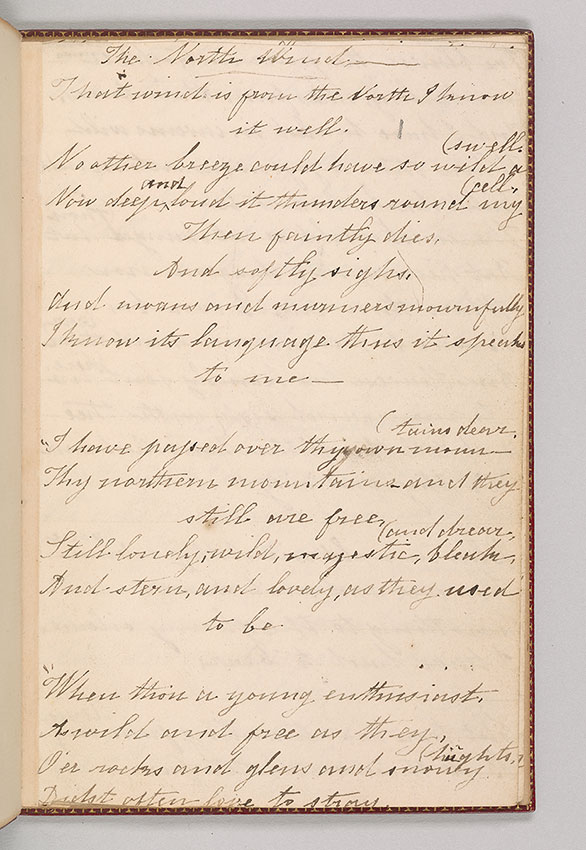 The North Wind
That wind is from the North I know
it well.
(swell.
No other breeze could have so wild a
and (cell.
Now deep, loud it thunders round my
Then faintly dies,
And softly sighs,
And moans and murmers mournfully
I know its language thus it speaks
to me —
(tains dear.
"I have passed over thy own moun—
Thy northern mountains and they
still are free,
(and drear,
Still lonely, wild, majestic, bleak,
And stern, and lovely, as they used
to be
"When thou a young enthusiast.
As wild and free as they,
(hights,
O'er rocks and glens and snowy
Didst often love to stray.